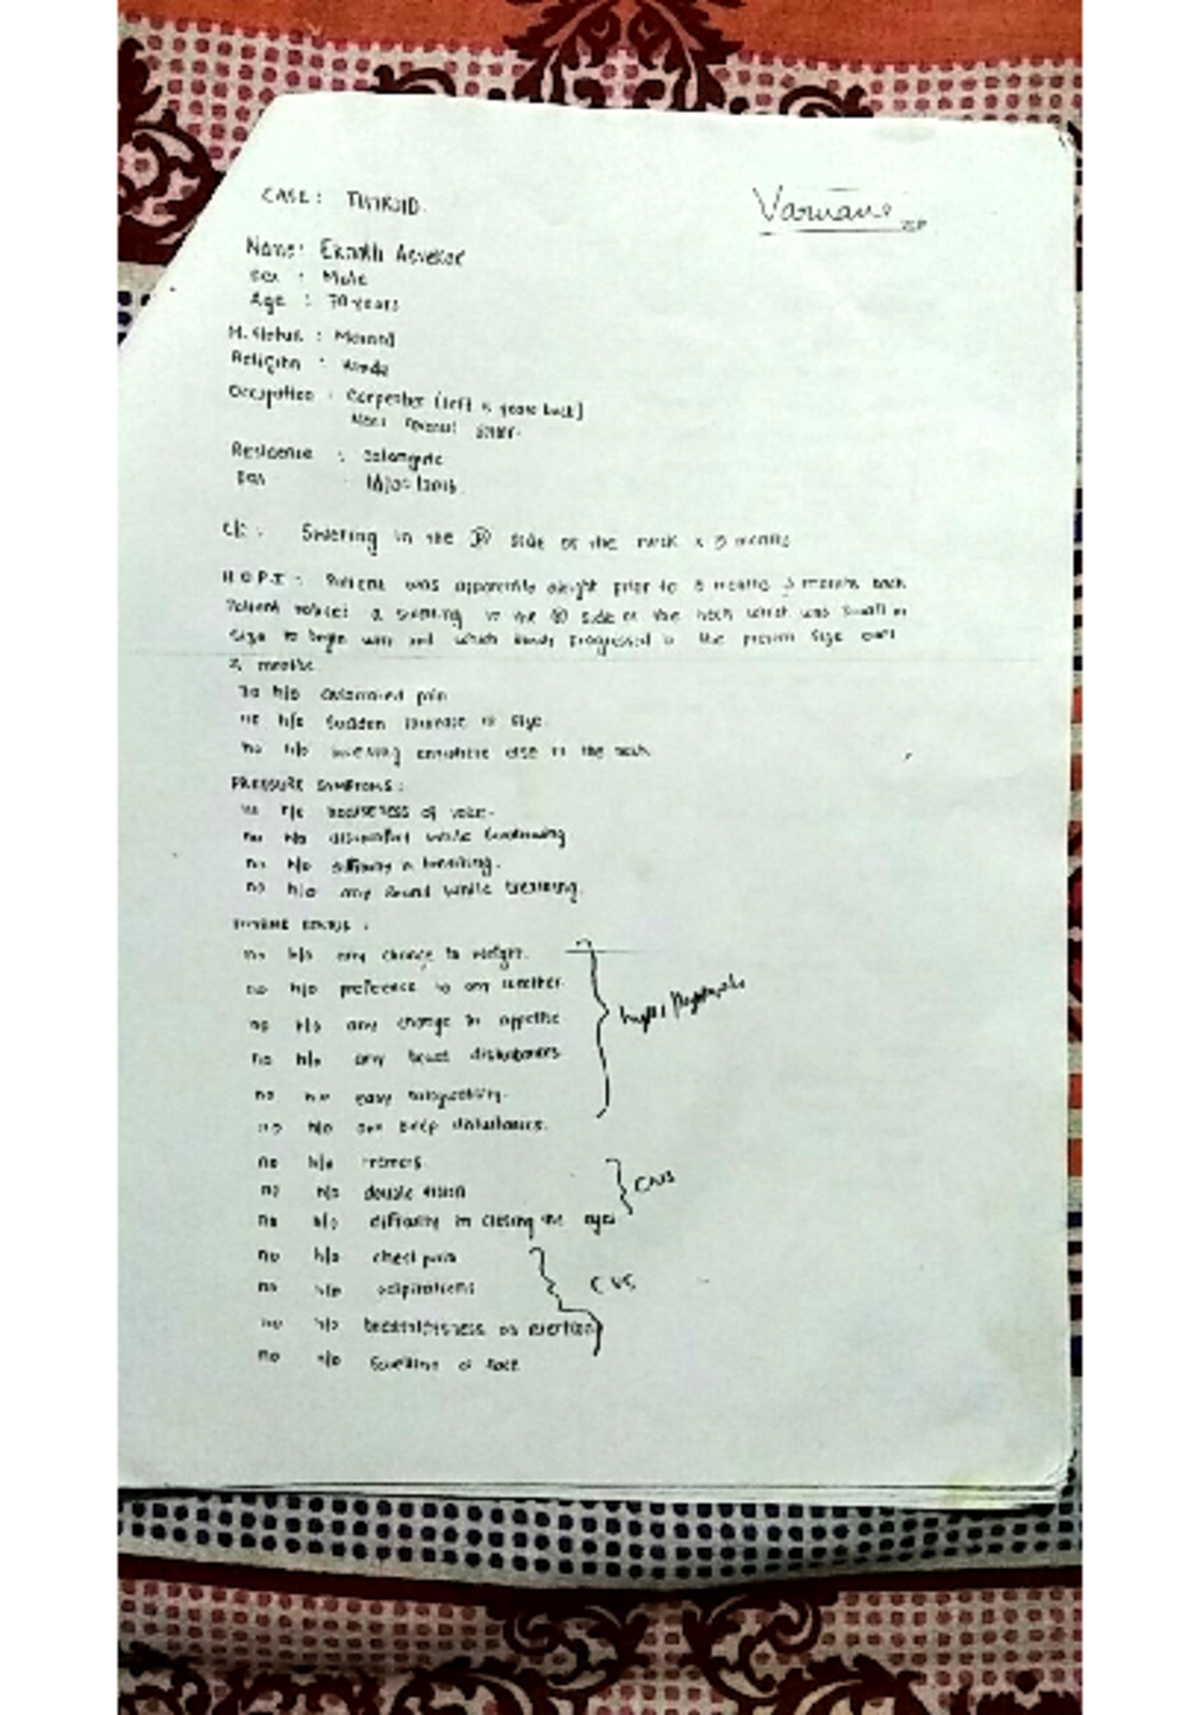 CASE: THYROID.
Varuane
Name: Eknath
Sex : Male
Age : 70 years
M. Status : Married
Religion : Hindu
Occupation : Carpenter [left 5 years back]
Residence :
C/C: Swelling in the (R) side of the neck x 3 months
H.O.P.I : Patient was apparently alright prior to 3 months 3 months back
Patient noticed a swelling in the (R) side of the neck which was small in
size to begin with and which slowly progressed to the present size over
3 months
no h/o associated pain
no h/o sudden increase in size.
no h/o swelling anywhere else in the neck
PRESSURE SYMPTOMS :
no h/o hoarseness of voice.
no h/o discomfort while swallowing
no h/o difficulty in breathing.
no h/o any sound while breathing.
no h/o any change in weight.
no h/o preference to any weather
no h/o any change in appetite
no h/o any bowel disturbances
no h/o easy
no h/o any sleep disturbances.
no h/o tremors
no h/o double vision
no h/o difficulty in closing the eyes
CNS
no h/o chest pain
no h/o palpitations
CVS
no h/o breathlessness on exertion
no h/o swelling of feet